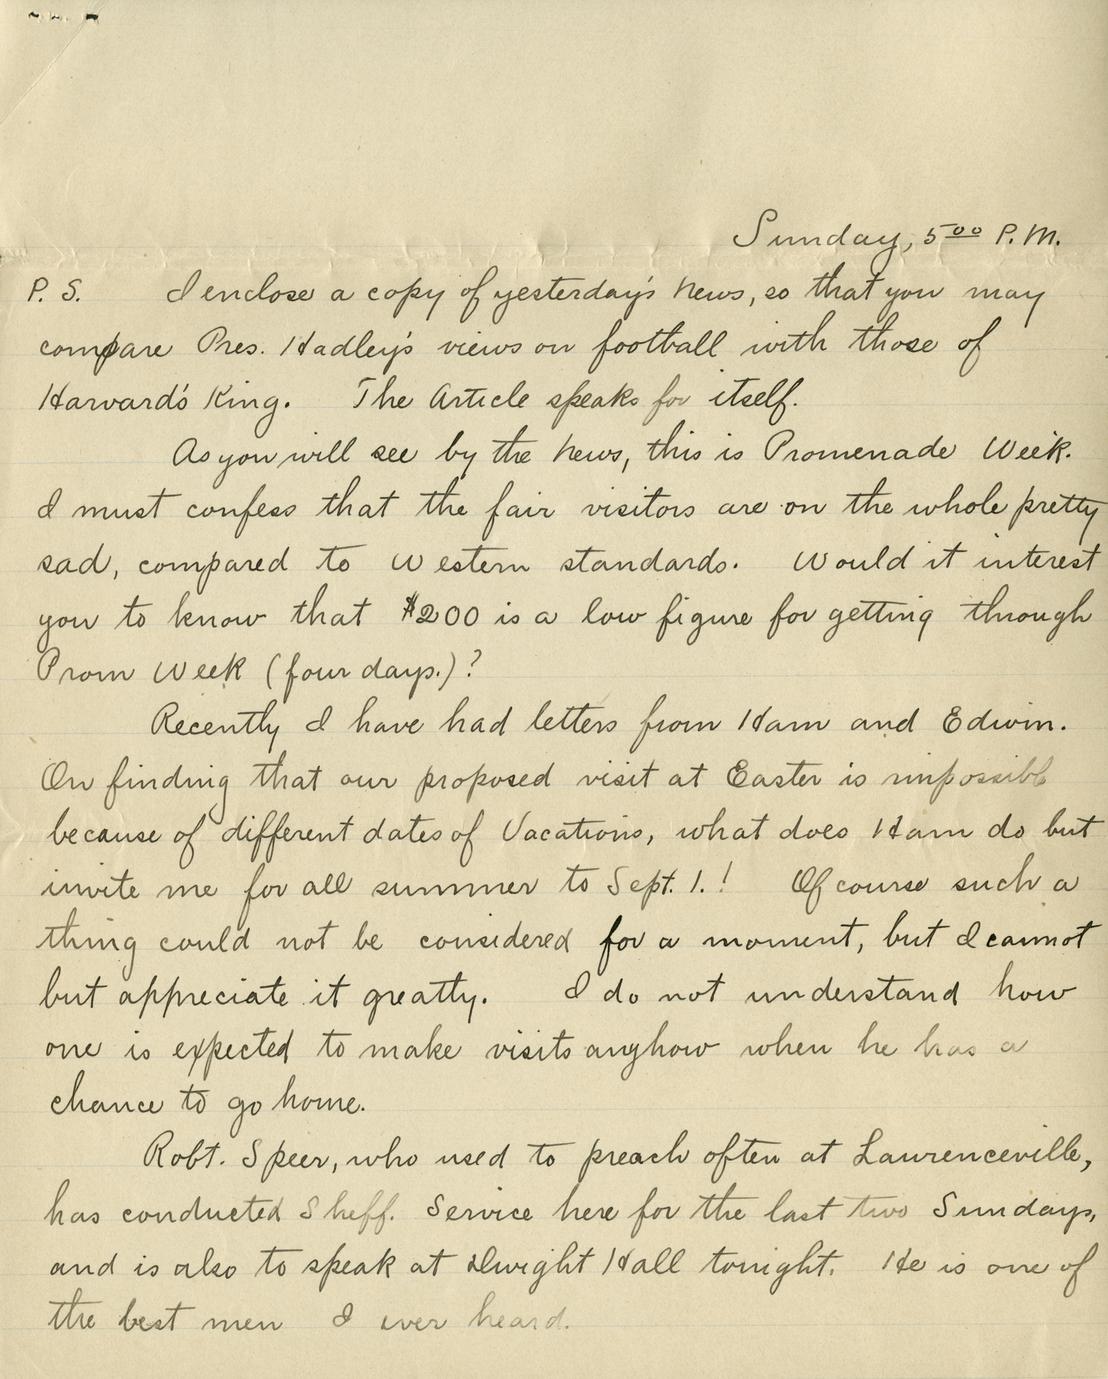 Sunday, 5⁰⁰ P.M.
P. S. I enclose a copy of yesterday's News, so that you may
compare Pres. Hadley's views on football with those of
Harvard's King. The Article speaks for itself.
As you will see by the News, this is Promenade Week.
I must confess that the fair visitors are on the whole pretty
sad, compared to Western standards. Would it interest
you to know that $200 is a low figure for getting through
Prom Week (four days.)?
Recently I have had letters from Ham and Edwin.
On finding that our proposed visit at Easter is impossible
because of different dates of Vacations, what does Ham do but
invite me for all summer to Sept. 1.! Of course such a
thing could not be considered for a moment, but I cannot
but appreciate it greatly. I do not understand how
one is expected to make visits anyhow when he has a
chance to go home.
Robt. Speer, who used to preach often at Lawrenceville,
has conducted Sheff. Service here for the last two Sundays,
and is also to speak at Dwight Hall tonight. He is one of
the best men I ever heard.